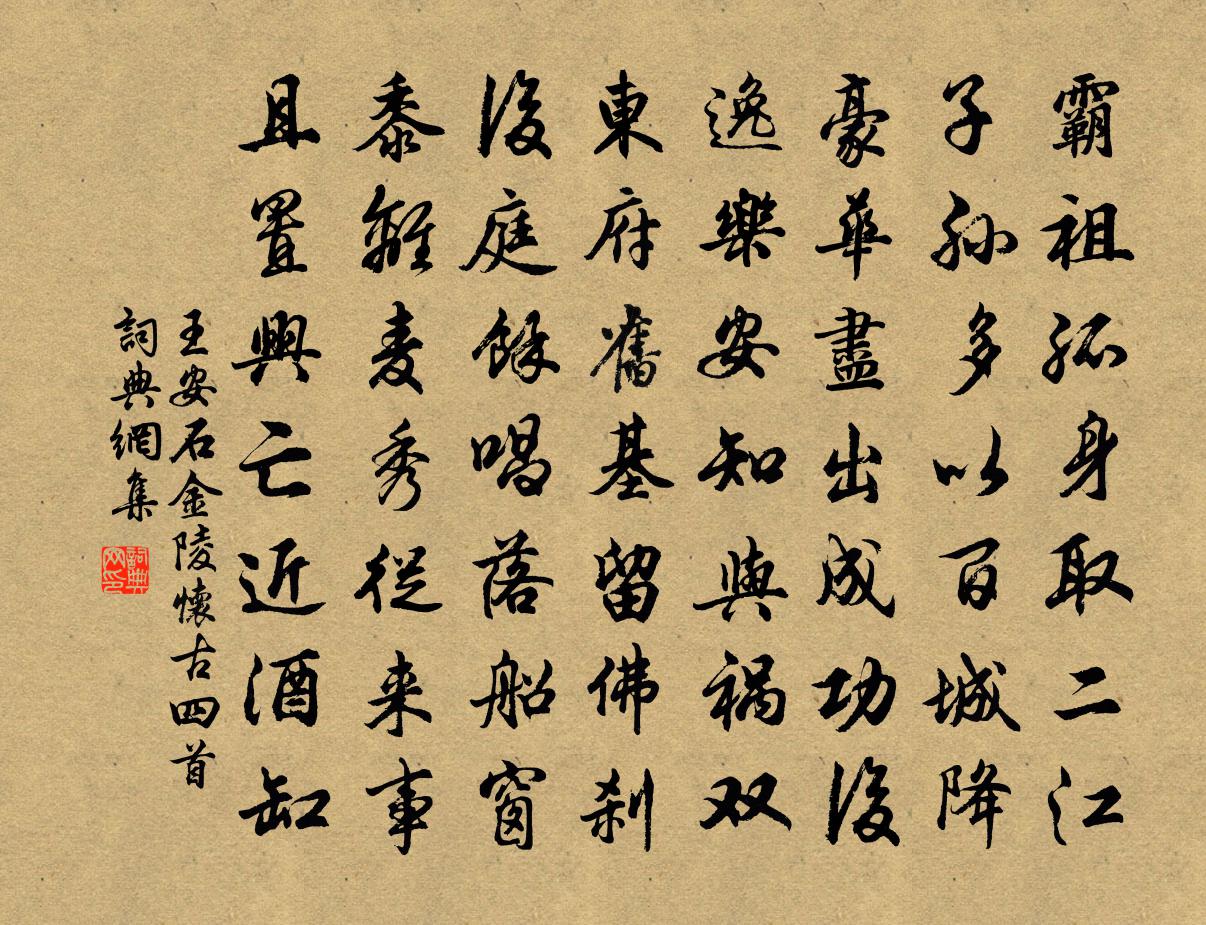 霸祖孤身取二江
子孙多以百城降
豪華盡出成功後
逸樂安知與祸双
東府舊基留佛刹
後庭餘唱落船窗
黍離麦秀從来事
且置興亡近酒缸
王安石金陵懷古四首
詞典網集
詞典网印